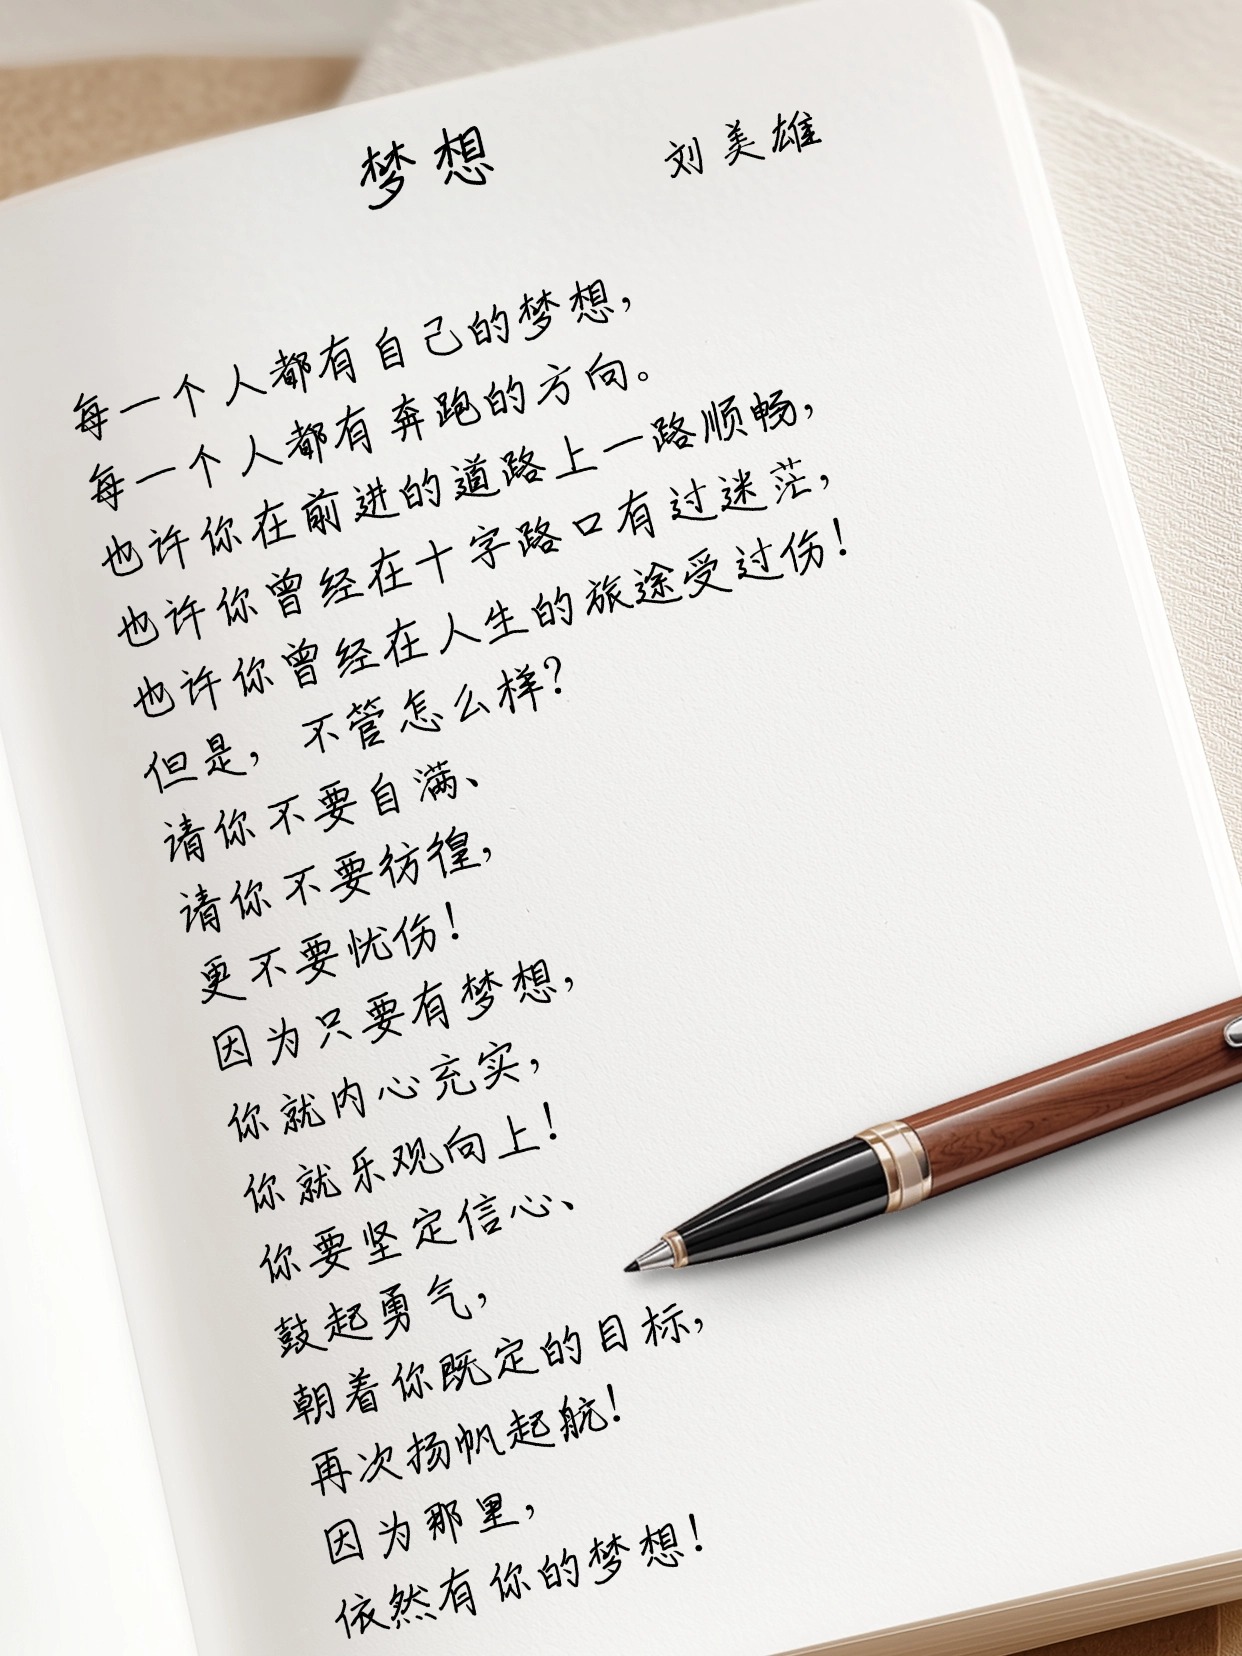 梦想 刘美雄
每一个人都有自己的梦想，
每一个人都有奔跑的方向。
也许你在前进的道路上一路顺畅，
也许你曾经在十字路口有过迷茫，
也许你曾经在人生的旅途受过伤！
但是，不管怎么样？
请你不要自满、
请你不要彷徨，
更不要忧伤！
因为只要有梦想，
你就内心充实，
你就乐观向上！
你要坚定信心、
鼓起勇气，
朝着你既定的目标，
再次扬帆起航！
因为那里，
依然有你的梦想！